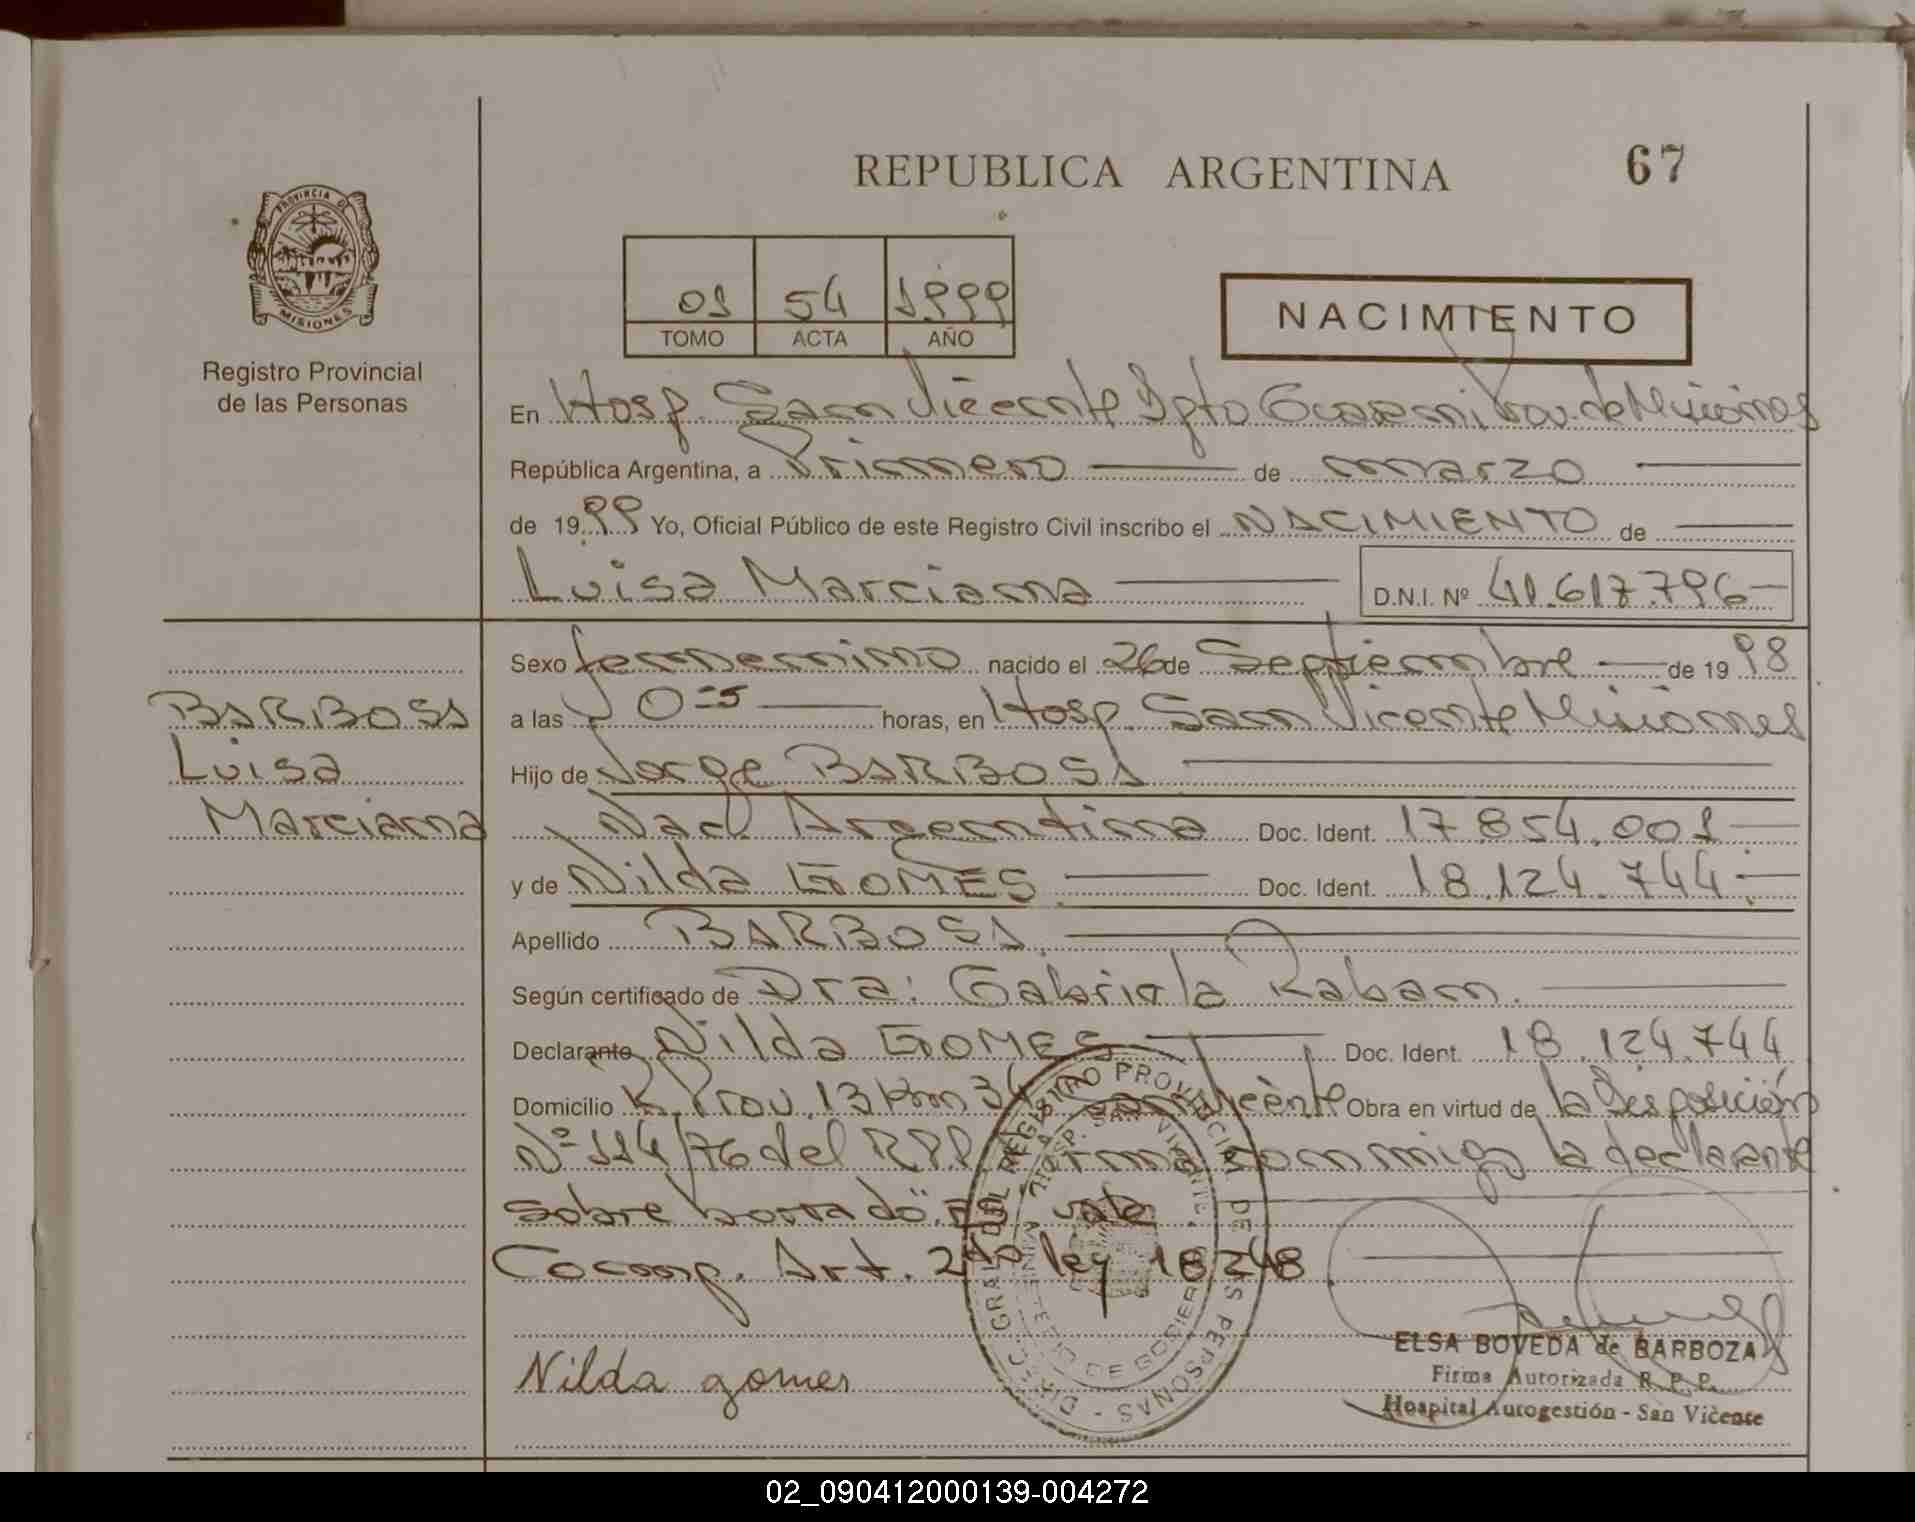 REPUBLICA ARGENTINA
67
PROVINCIA DE
MISIONES
Registro Provincial
de las Personas
01 54 1999
TOMO ACTA AÑO
NACIMIENTO
En Hosp. San Vicente Dpto Guarani Prov. de Misiones
República Argentina, a Primero de marzo
de 1999 Yo, Oficial Público de este Registro Civil inscribo el NACIMIENTO de
Luisa Marciana
D.N.I. Nº 41.617.796
BARBOSA
Luisa
Marciana
Sexo femenino nacido el 26 de Septiembre de 1998
a las horas, en Hosp. San Vicente Misiones
Hijo de Jorge BARBOSA
Nac. Argentina Doc. Ident. 17.854.001
y de Nilda GOMES Doc. Ident. 18.124.744
Apellido BARBOSA
Según certificado de Dra: Gabriela Raban.
Declarante Nilda GOMES Doc. Ident. 18.124.744
Domicilio R. Prov. 13 Km 34 San Vicente Obra en virtud de la Disposición
Nº 114/76 del RPP. Firma conmigo la declarante
sobre borrado: vale
Art. 2do ley 18248
DIREC. GRAL. DEL REGISTRO PROVINCIAL DE LAS PERSONAS -
HOSP. SAN VICENTE.
MINISTERIO DE GOBIERNO
Nilda gomes
ELSA BOVEDA de BARBOZA
Firma Autorizada R. P. P.
Hospital Autogestión - San Vicente
02_090412000139-004272